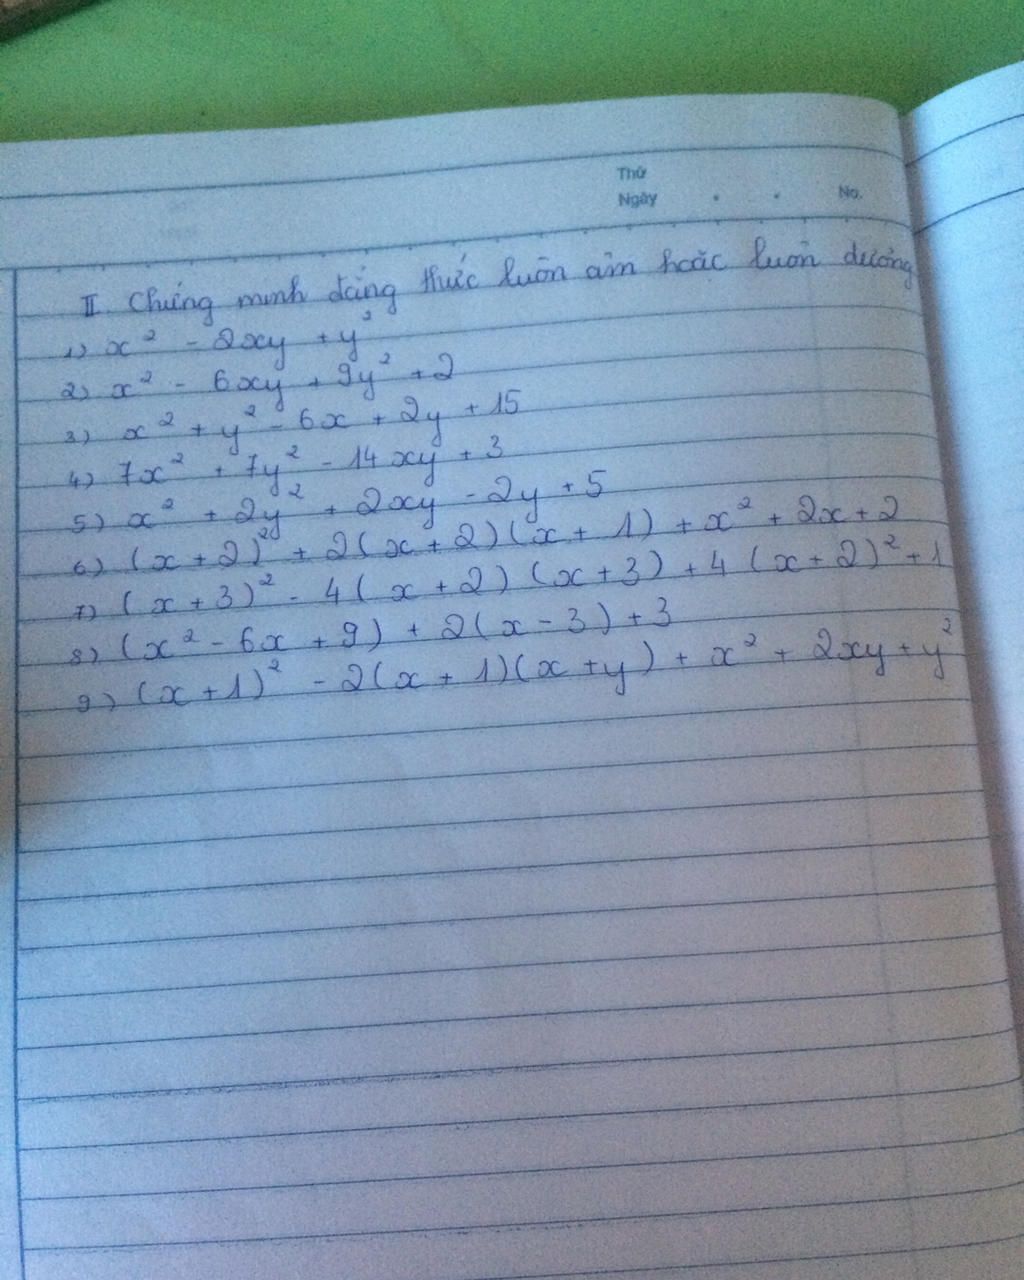 Thứ
Ngày . . No.
II. Chứng minh đẳng thức luôn âm hoặc luôn dương
1) x² - 2xy + y²
2) x² - 6xy + 9y² + 2
3) x² + y² - 6x + 2y + 15
4) 7x² + 7y² - 14xy + 3
5) x² + 2y² + 2xy - 2y + 5
6) (x + 2)² + 2(x + 2)(x + 1) + x² + 2x + 2
7) (x + 3)² - 4(x + 2)(x + 3) + 4(x + 2)² + 1
8) (x² - 6x + 9) + 2(x - 3) + 3
9) (x + 1)² - 2(x + 1)(x + y) + x² + 2xy + y²